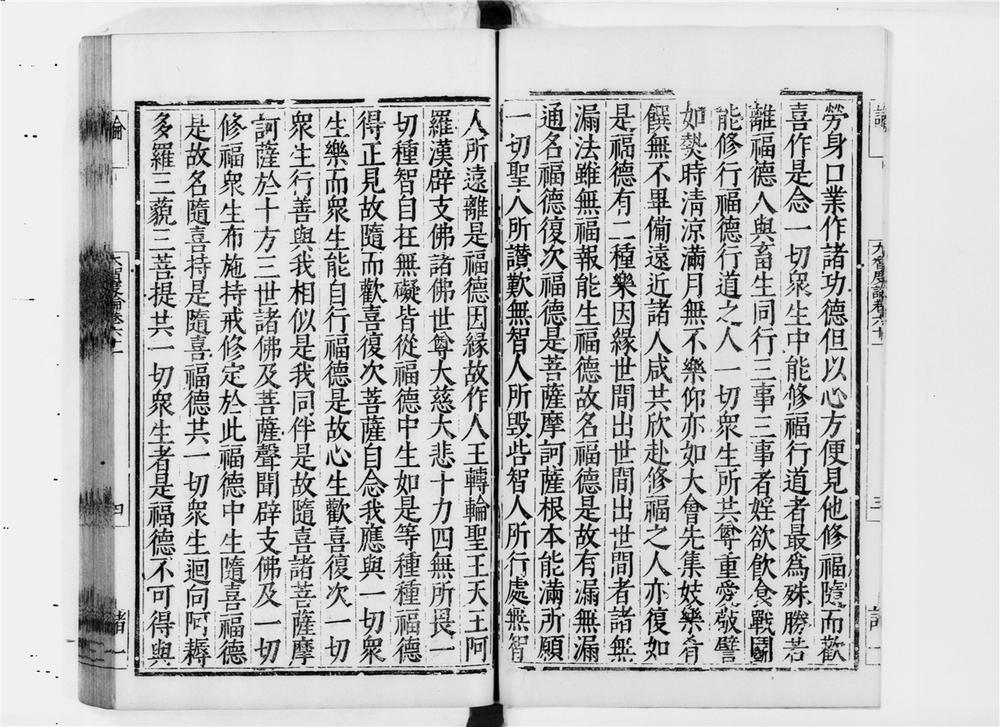 勞身口業作諸功德但以心方便見他修福隨而歡
喜作是念一切衆生中能修福行道者最爲殊勝若
離福德人與畜生同行三事三事者婬欲飲食戰鬭
能修行福德行道之人一切衆生所共尊重愛敬譬
如熱時清涼滿月無不樂仰亦如大會先集妓樂肴
饌無不畢備遠近諸人咸共欣赴修福之人亦復如
是福德有二種樂因緣世間出世間出世間者諸無
漏法雖無福報能生福德故名福德是故有漏無漏
通名福德復次福德是菩薩摩訶薩根本能滿所願
一切聖人所讚歎無智人所毀呰智人所行處無智
人所遠離是福德因緣故作人王轉輪聖王天王阿
羅漢辟支佛諸佛世尊大慈大悲十力四無所畏一
切種智自在無礙皆從福德中生如是等種種福德
得正見故隨而歡喜復次菩薩自念我應與一切衆
生樂而衆生能自行福德是故心生歡喜復次一切
衆生行善與我相似是我同伴是故隨喜諸菩薩摩
訶薩於十方三世諸佛及菩薩聲聞辟支佛及一切
修福衆生布施持戒修定於此福德中生隨喜福德
是故名隨喜持是隨喜福德共一切衆生迴向阿耨
多羅三藐三菩提共一切衆生者是福德不可得與
論
四